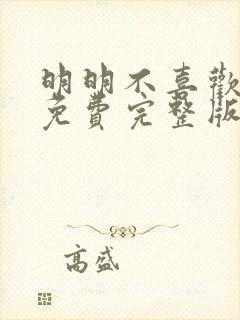 明明不喜歡
免費完整版
高盛